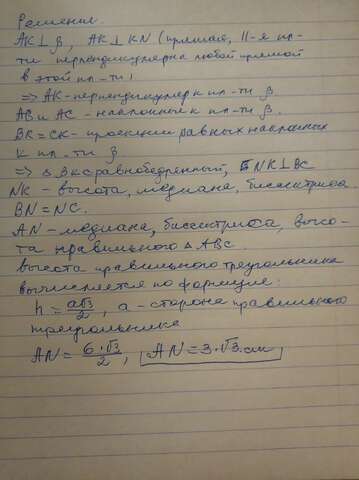 Решение.
АК ⊥ β, АК ⊥ KN (прямая, ||-я пл-
ти перпендикулярна любой прямой
в этой пл-ти)
=> АК - перпендикуляр к пл-ти β
АВ и АС - наклонные к пл-ти β.
ВК = СК - проекции равных наклонных
к пл-ти β
=> △ ВКС равнобедренный, NK ⊥ BC
NK - высота, медиана, биссектриса
BN = NC.
AN - медиана, биссектриса, высо-
та правильного △ АВС.
высота правильного треугольника
вычисляется по формуле:
h = a√3/2, а - сторона правильного
треугольника
AN = 6·√3/2, AN = 3·√3 см